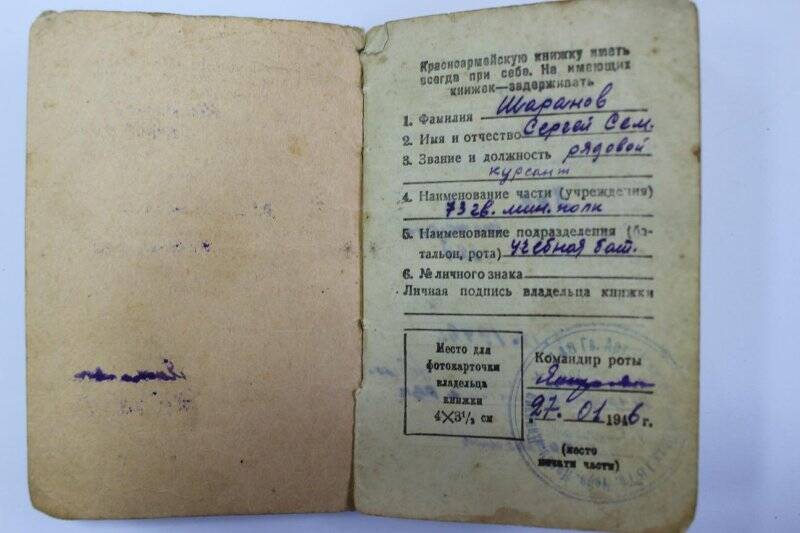 Красноармейскую книжку иметь
всегда при себе. Не имеющих
книжек—задерживать
1. Фамилия Шаранов
2. Имя и отчество Сергей Сем.
3. Звание и должность рядовой
курсант
4. Наименование части (учреждения)
73 гв. мин. полк
5. Наименование подразделения (ба-
тальон, рота) учебная бат.
6. № личного знака
Личная подпись владельца книжки
Место для
фотокарточки
владельца
книжки
4×3½ см
Командир роты
27. 01 1946 г.
(место
печати части)